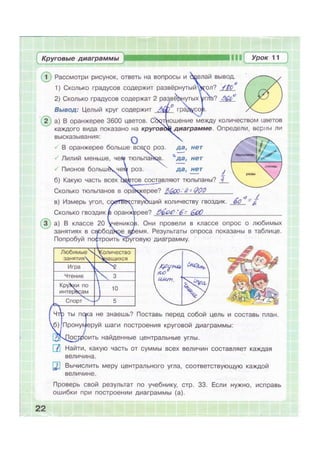 Круговые диаграммы
Урок 11
1 Рассмотри рисунок, ответь на вопросы и сделай вывод.
1) Сколько градусов содержит развёрнутый угол? 180°
2) Сколько градусов содержат 2 развёрнутых угла? 360°
Вывод: Целый круг содержит 360° градусов.
2 а) В оранжерее 3600 цветов. Соотношение между количеством цветов
каждого вида показано на круговой диаграмме. Определи, верны ли
высказывания:
✓ В оранжерее больше всего роз. да, нет
✓ Лилий меньше, чем тюльпанов. да, нет
✓ Пионов больше, чем роз. да, нет
б) Какую часть всех цветов составляют тюльпаны?
Сколько тюльпанов в оранжерее? 3600:4=900
в) Измерь угол, соответствующий количеству гвоздик. 60°
Сколько гвоздик в оранжерее? 3600:6=600
3 а) В классе 20 учеников. Они провели в классе опрос о любимых
занятиях в свободное время. Результаты опроса показаны в таблице.
Попробуй построить круговую диаграмму.
Любимые занятия Количество учащихся
Игра 2
Чтение 3
Кружки по интересам 10
Спорт 5
Что ты пока не знаешь? Поставь перед собой цель и составь план.
б) Пронумеруй шаги построения круговой диаграммы:
Построить найденные центральные углы.
1 Найти, какую часть от суммы всех величин составляет каждая
величина.
2 Вычислить меру центрального угла, соответствующую каждой
величине.
Проверь свой результат по учебнику, стр. 33. Если нужно, исправь
ошибки при построении диаграммы (а).
22